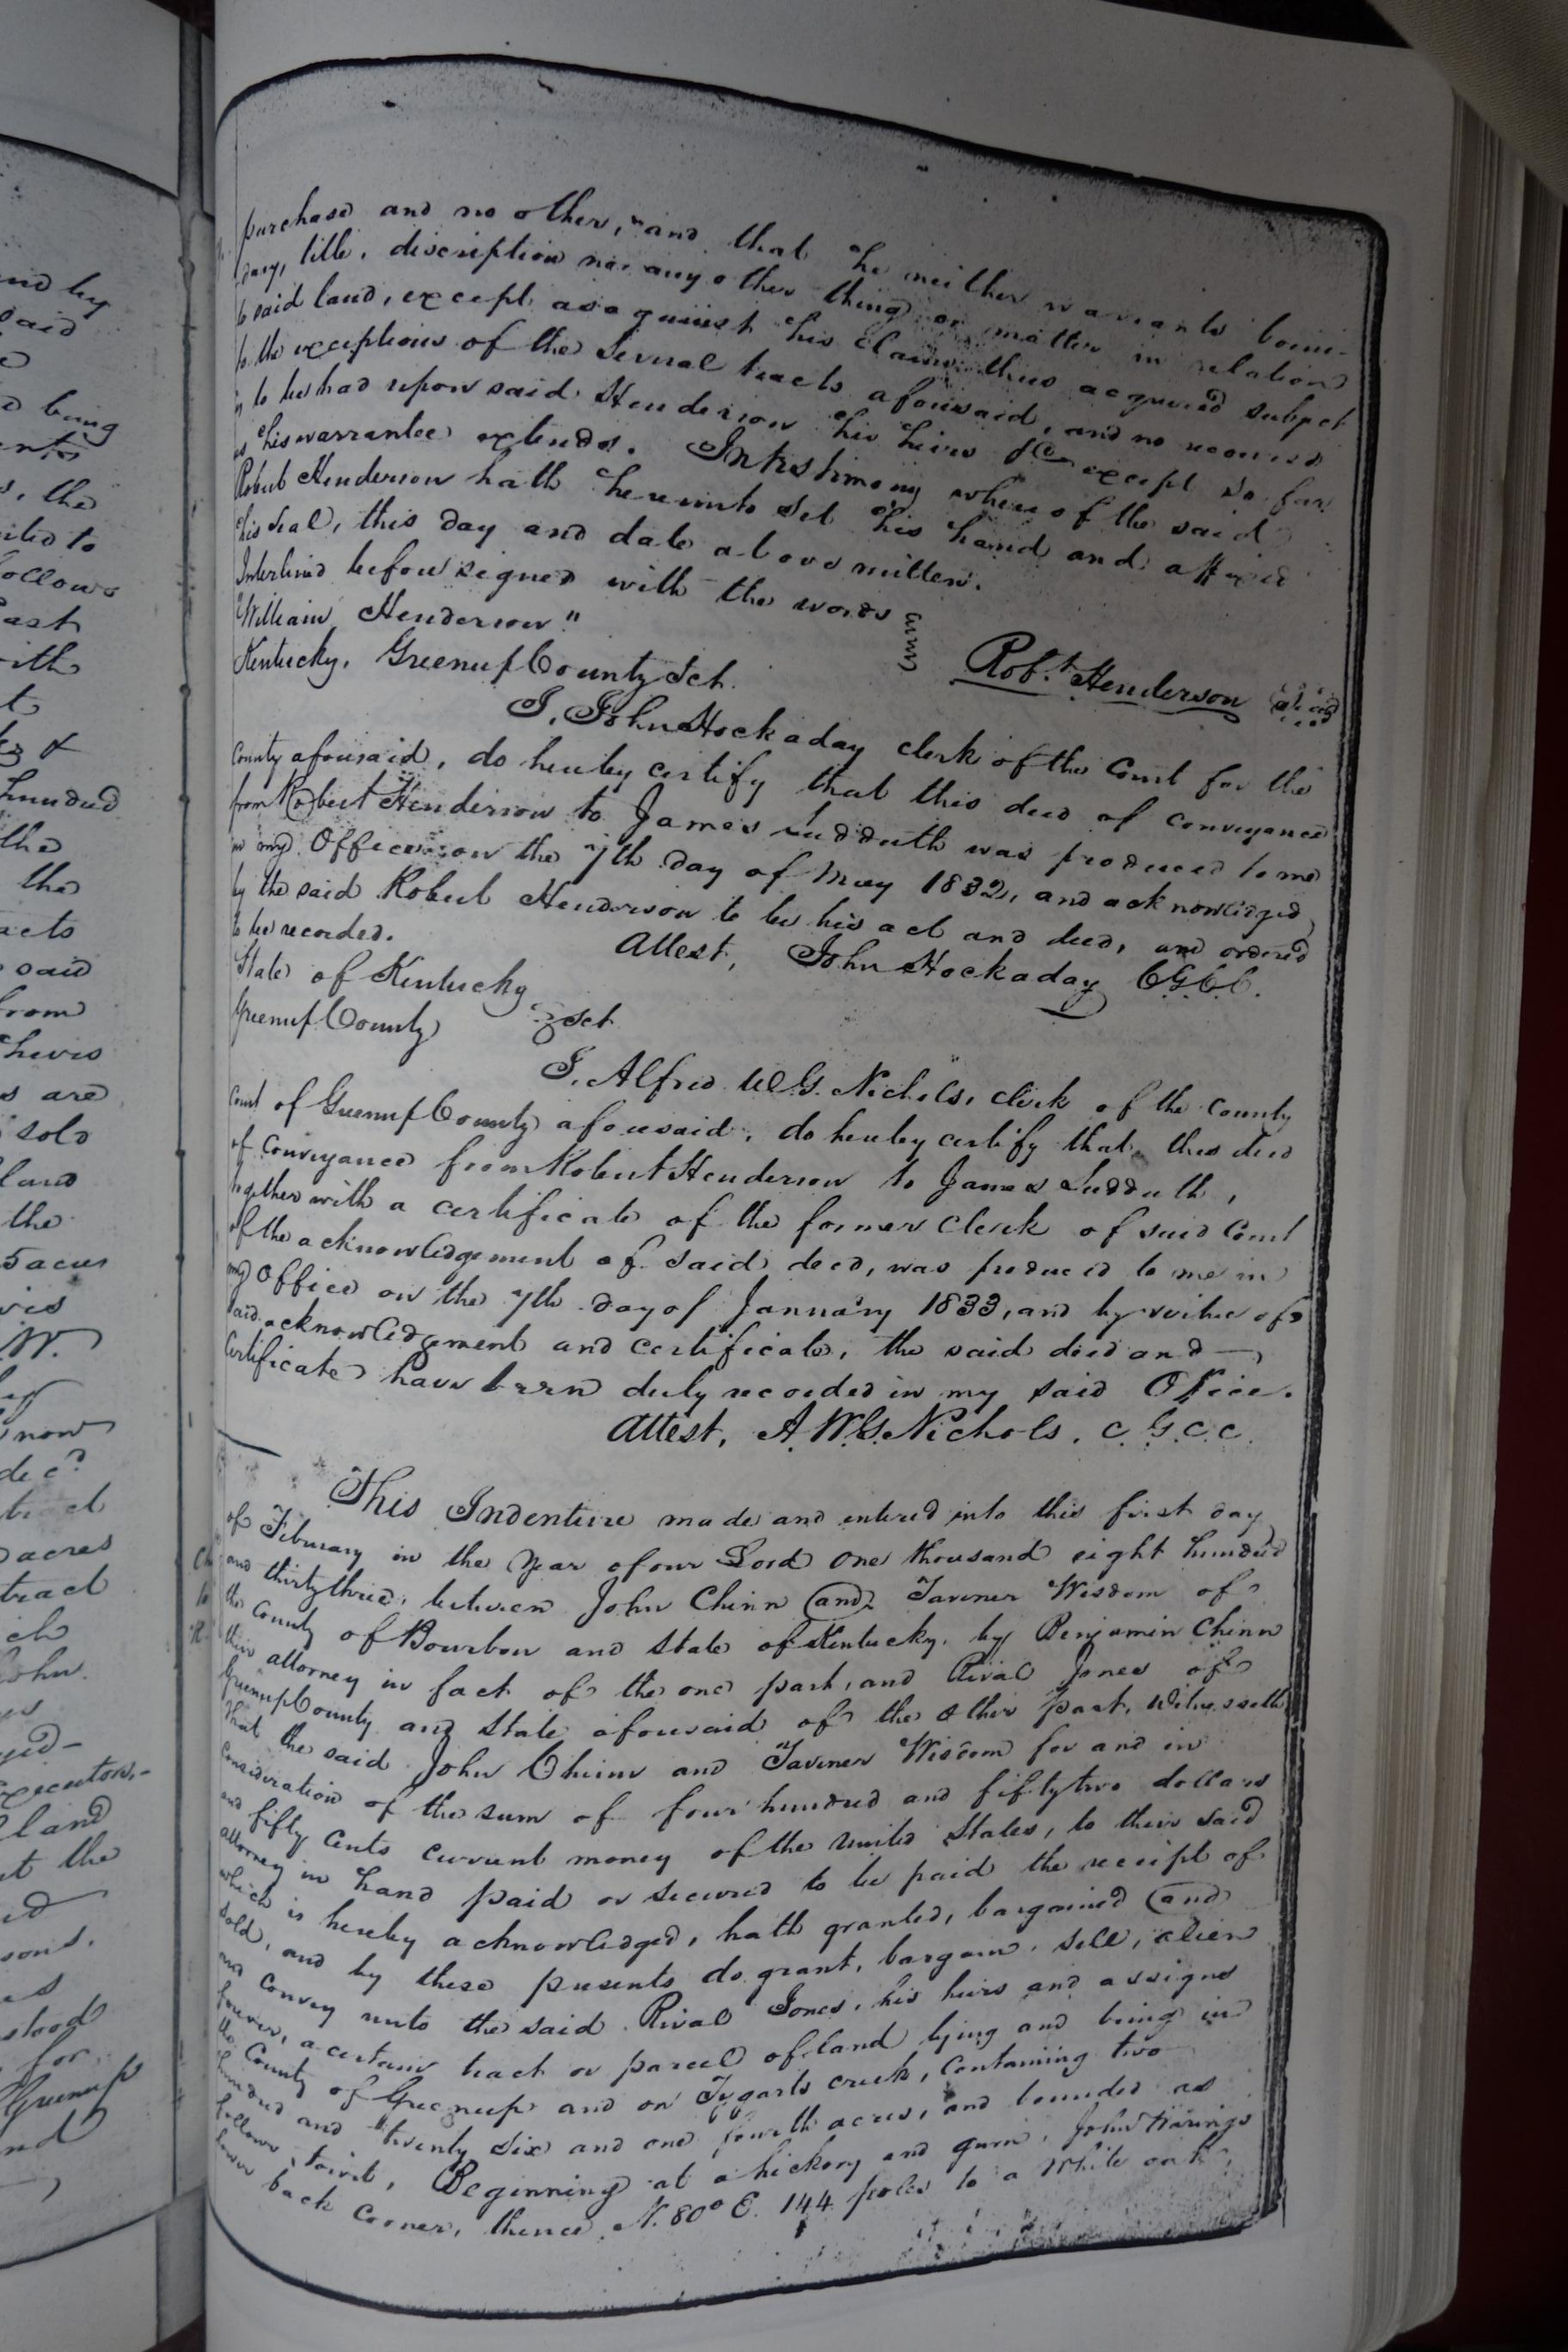 purchase and no other, and that he neither warrants boun-
dary, title, discription nor any other thing or matter in relation
to said land, except as against his claim thus acquired subject
to the exceptions of the several tracts aforesaid, and no recourse
to be had upon said Henderson his heirs &c except so far
as his warrantee extends. In testimony whereof the said
Robert Henderson hath hereunto set his hand and affixed
his seal, this day and date above written.
Interlined before signed with the words
"William Henderson"
Robt. Henderson Seal
Kentucky, Greenup County Sct.
I, John Hockaday clerk of the Court for the
County aforesaid, do hereby certify that this deed of conveyance
from Robert Henderson to James Sudduth was produced to me
in my Office on the 7th day of May 1832, and acknowledged
by the said Robert Henderson to be his act and deed, and ordered
to be recorded.
Attest, John Hockaday C.G.C.C.
State of Kentucky
Greenup County Sct
I, Alfred W.G. Nichols, clerk of the County
Court of Greenup County aforesaid, do hereby certify that this deed
of conveyance from Robert Henderson to James Sudduth,
together with a certificate of the former Clerk of said Court
of the acknowledgement of said deed, was produced to me in
my Office on the 7th day of January 1833, and by virtue of
said acknowledgement and certificate, the said deed and
Certificate have been duly recorded in my said Office.
Attest, A.W.G. Nichols, C.G.C.C.
This Indenture made and entered into this first day
of February in the year of our Lord one thousand eight hundred
and thirty three, between John Chinn and Tavner Wisdom of
the County of Bourbon and State of Kentucky, by Benjamin Chinn
their attorney in fact of the one part, and Rival Jones of
Greenup County and State aforesaid of the other part, Witnesseth
that the said John Chinn and Tavner Wisdom for and in
consideration of the sum of four hundred and fifty two dollars
and fifty cents current money of the United States, to their said
attorney in hand paid or secured to be paid the receipt of
which is hereby acknowledged, hath granted, bargained and
sold, and by these presents do grant, bargain, sell, alien
and convey unto the said Rival Jones, his heirs and assigns
forever, a certain tract or parcel of land lying and being in
the County of Greenup and on Tygarts creek, containing two
hundred and twenty six and one fourth acres, and bounded as
follows, towit, Beginning at a hickory and gum, John Warings
lower back corner, thence N. 80° E. 144 poles to a White oak,